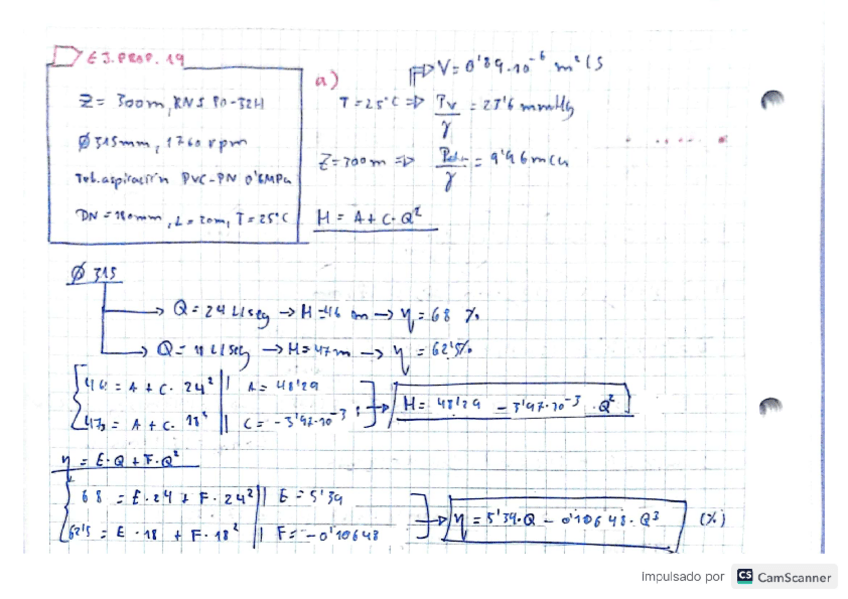 EJ. PROP. 19
Z = 300m, RNS 80-32H
Ø 315mm, 1760 rpm
Tub. aspiración PVC-PN 0'6MPa
DN = 180mm, L = 20m, T = 25°C
a)
V = 0'89·10⁻⁶ m²/s
T = 25°C ⇒ Pv/γ = 23'6 mmHg
Z = 300m ⇒ Patm/γ = 9'96 mca
H = A + C·Q²
Ø 315
→ Q = 24 L/seg → H = 46 m → η = 68 %
→ Q = 18 L/seg → H = 47 m → η = 62'5%
46 = A + C · 24² | A = 48'29
47 = A + C · 18² | C = -3'97·10⁻³
H = 48'29 - 3'97·10⁻³ · Q²
η = E·Q + F·Q²
68 = E·24 + F·24² | E = 5'39
62'5 = E·18 + F·18² | F = -0'10648
η = 5'39·Q - 0'10648·Q³ (%)
Impulsado por CS CamScanner